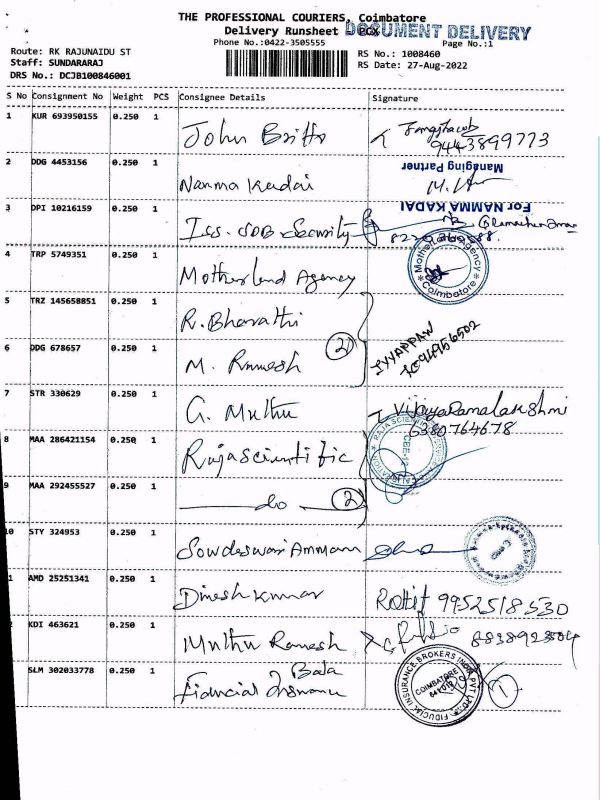 THE PROFESSIONAL COURIERS, Coimbatore
Delivery Runsheet DOX
DOCUMENT DELIVERY
Phone No.:0422-3505555
Page No.:1
Route: RK RAJUNAIDU ST
Staff: SUNDARARAJ
DRS No.: DCJB100846001
RS No.: 1008460
RS Date: 27-Aug-2022
S No Consignment No Weight PCS Consignee Details Signature
1 KUR 693950155 0.250 1 John Britto
9443899773
2 DDG 4453156 0.250 1 Namma Kadai
Managing Partner
For NAMMA KADAI
3 DPI 10216159 0.250 1 Iss. SDB Security
4 TRP 5749351 0.250 1 Motherland Agency
Motherland Agency
Coimbatore
5 TRZ 145658851 0.250 1 R. Bharathi
6 DDG 678657 0.250 1 M. Ramesh (2) IYYAPPAN
7 STR 330629 0.250 1 G. Muthu Vijayaramalakshmi
6380764678
8 MAA 286421154 0.250 1 Rajascientific
9 MAA 292455527 0.250 1 do (2)
10 STY 324953 0.250 1 Sowdeswari Ammam
1 AMD 25251341 0.250 1 Dinesh kumar Rohit 9952518530
2 KDI 463621 0.250 1 Muthu Ramesh
SLM 302033778 0.250 1 Bala
Financial Insurance
FIDUCIAL INSURANCE BROKERS INDIA PVT LTD
COIMBATORE
1